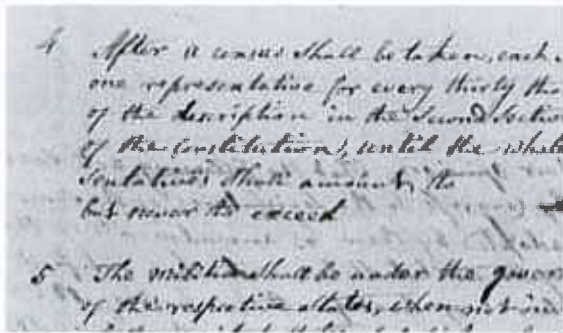 4 After a census shall be taken, each
one representative for every thirty tho
of the description in the second Sectio
of the Constitution, until the whole
sentatives shall amount to
but never to exceed
5 The militia shall be under the gover
of the respective states, when not in